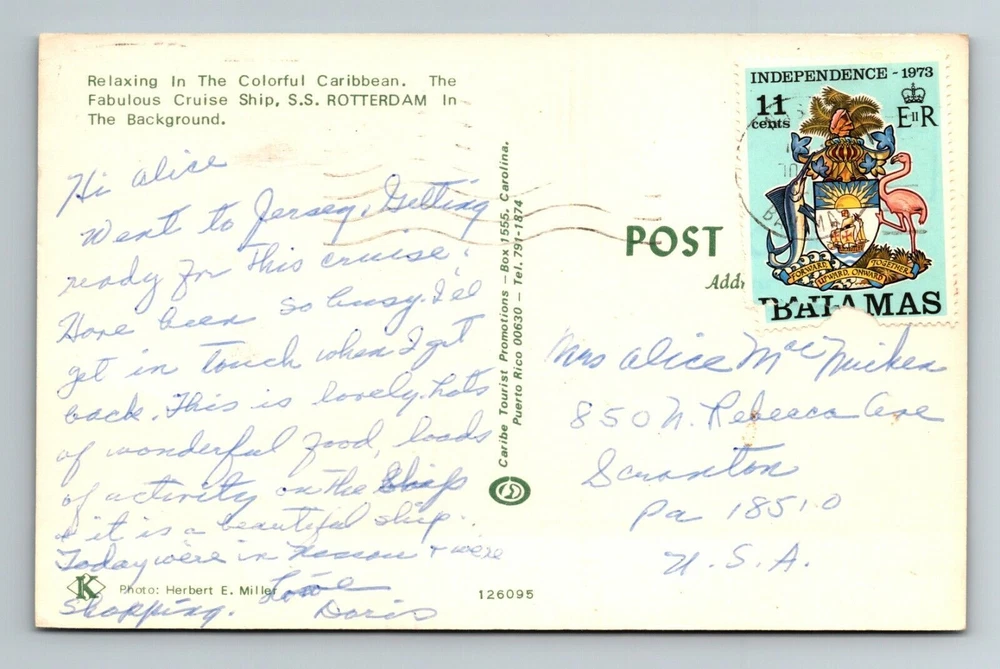 Relaxing In The Colorful Caribbean. The
Fabulous Cruise Ship, S.S. ROTTERDAM In
The Background.
Hi Alice
Went to Jersey. Getting
ready for this cruise.
Have been so busy. I'll
get in touch when I get
back. This is lovely. Lots
of wonderful food, loads
of activity on the Ship
& it is a beautiful ship.
Today we're in Nassau & we're
shopping. Love
Doris
Photo: Herbert E. Miller
K
126095
Caribe Tourist Promotions – Box 1555, Carolina,
Puerto Rico 00630 – Tel. 791-1874
POST
Addr
INDEPENDENCE - 1973
11
cents
E II R
FORWARD UPWARD, ONWARD TOGETHER
BAHAMAS
Mrs Alice Mac
850 N. Rebecca Ave
Scranton
Pa 18510
U.S.A.